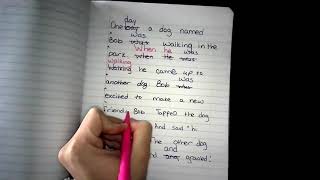 day
One day a dog named
was
Bob walking in the
When he was
park. when he was
walking
walking he came up to
another dog. Bob was
excited to make a new
friend. Bob Tapped the dog
and said "hi
The other dog
and
growled!